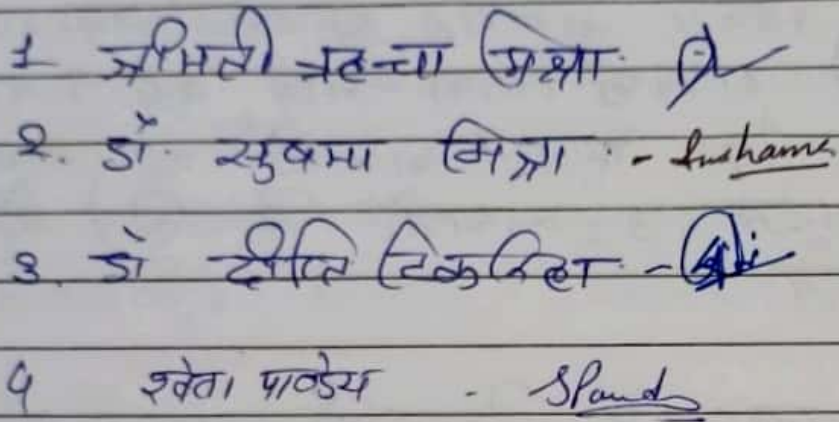 1 श्रीमती ऋचा मिश्रा
2. डॉ. सुषमा मिश्रा - Sushama
3. डॉ दीप्ति -
4 श्वेता पाण्डेय - SPand